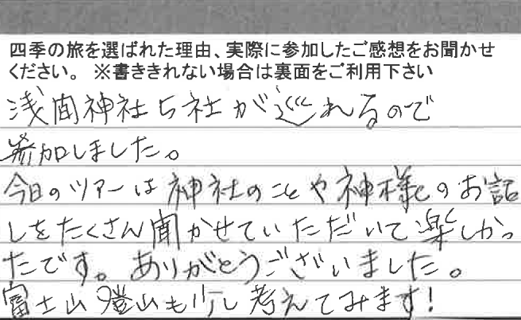 四季の旅を選ばれた理由、実際に参加したご感想をお聞かせ
ください。 ※書ききれない場合は裏面をご利用下さい
浅間神社5社が巡れるので
参加しました。
今日のツアーは神社のことや神様のお話
しをたくさん聞かせていただいて楽しかっ
たです。ありがとうございました。
富士山登山も少し考えてみます!